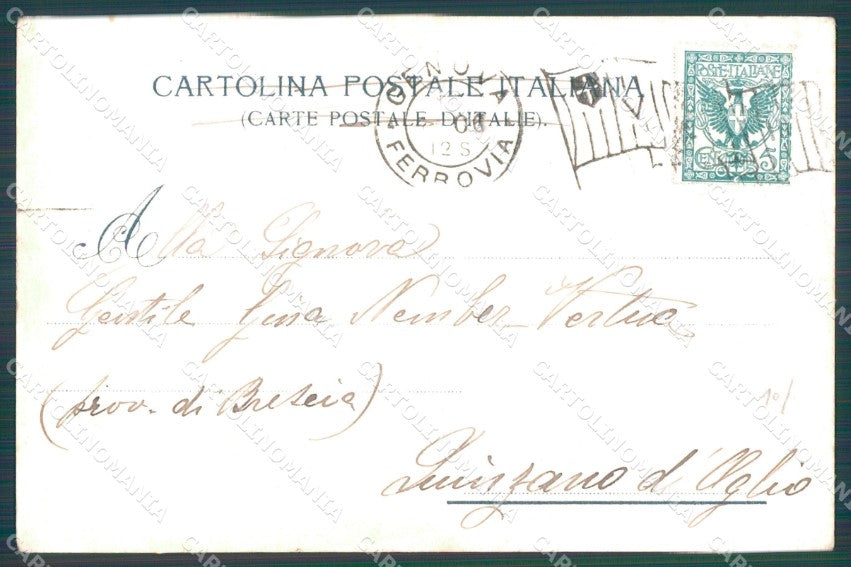 CARTOLINA POSTALE ITALIANA
(CARTE POSTALE D'ITALIE).
GENOVA
06
12 S
FERROVIA
POSTE ITALIANE
CENT 5
Alla Signora
Gentile Gina Nember-Vertua
(prov. di Brescia)
Quinzano d'Oglio
CARTOLINOMANIA